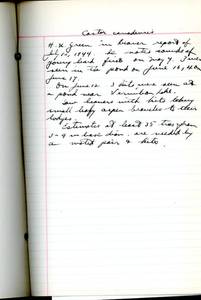 Castor canadensis
H. X. Green in beaver report of
July 10, 1944. He notes sounds of
young heard first on May 9. First
seen in the pond on June 16, 4 on
June 17.
On June 12. 3 kits was seen at
a pond near Vermilion Lake.
Saw beavers with kits taking
small leafy aspen branches to their
lodges.
Estimates at least 35 trees from
3-4 in base diam. are needed by
a mated pair & kits.